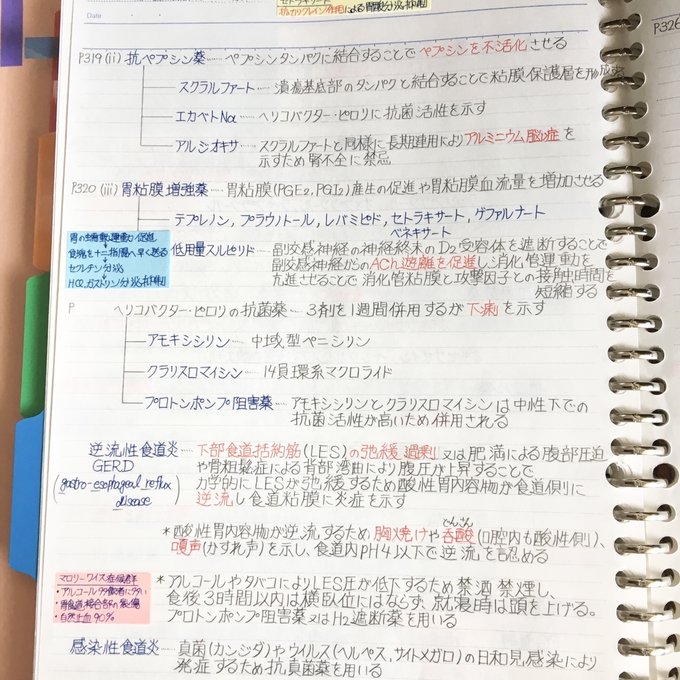 Date
P319 (ii) 抗ペプシン薬 … ペプシンタンパクに結合することでペプシンを不活化させる
スクラルファート … 潰瘍基底部のタンパクと結合することで粘膜保護層を形成する
エカベトNa … ヘリコバクター・ピロリに抗菌活性を示す
アルジオキサ … スクラルファートと同様に長期連用によりアルミニウム脳症を
示すため腎不全に禁忌
P320 (iii) 胃粘膜増強薬 … 胃粘膜(PGE2, PGI2)産生の促進や胃粘膜血流量を増加させる
テプレノン, プラウノトール, レバミピド, セトラキサート, ゲファルナート
ベネキサート
胃の蠕動運動促進
食塊を十二指腸へ早く送る
セクレチン分泌
HCl, ガストリン分泌抑制
低用量スルピリド … 副交感神経の神経終末のD2受容体を遮断することで
副交感神経からのACh遊離を促進し消化管運動を
亢進させることで消化管粘膜と攻撃因子との接触時間を
短縮する
P ヘリコバクター・ピロリの抗菌薬 … 3剤を1週間併用するが下痢を示す
アモキシシリン … 中域型ペニシリン
クラリスロマイシン … 14員環系マクロライド
プロトンポンプ阻害薬 … アモキシシリンとクラリスロマイシンは中性下での
抗菌活性が高いため併用される
逆流性食道炎 … 下部食道括約筋(LES)の弛緩過剰又は肥満による腹部圧迫
GERD や骨粗鬆症による背部湾曲により腹圧が上昇することで
(gastro-esophageal reflux 力学的にLESが弛緩するため酸性胃内容物が食道側に
disease) 逆流し食道粘膜に炎症を示す
どんさん
*酸性胃内容物が逆流するため胸焼けや呑酸(口腔内も酸性側)、
嗄声(かすれ声)を示し、食道内pH4以下で逆流を認める
マロリーワイス症候群
・アルコール多飲者に多い
・胃食道接合部の裂傷
・自然止血90%
*アルコールやタバコによりLES圧が低下するため禁酒禁煙し、
食後3時間以内は横臥位にはならず、就寝時は頭を上げる。
プロトンポンプ阻害薬又はH2遮断薬を用いる
感染性食道炎 … 真菌(カンジダ)やウイルス(ヘルペス, サイトメガロ)の日和見感染により
発症するため抗真菌薬を用いる
P326